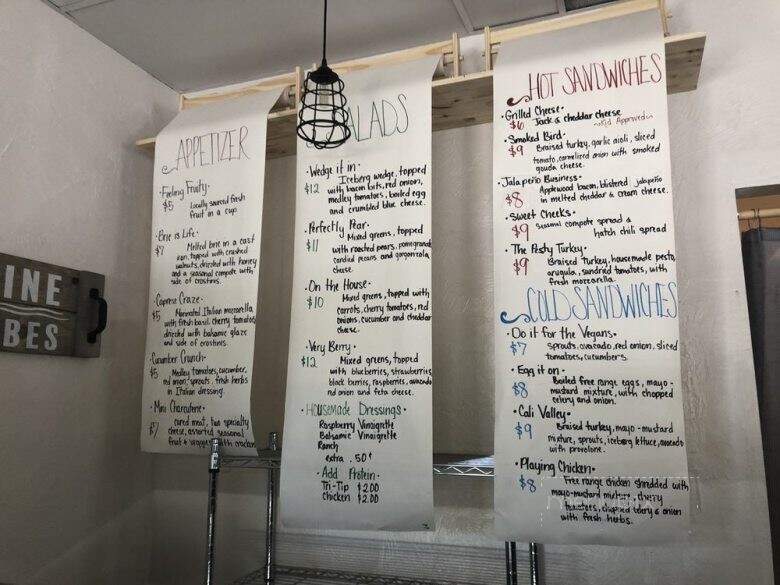 INE
BES
APPETIZER
Feeling Fruity
$5 Locally sourced fresh
fruit in a cup
Brie is Life
$7 Melted brie in a cast
iron, topped with crushed
walnuts, drizzled with honey
and a seasonal compote with
side of crostinis.
Caprese Craze
$5 Marinated Italian mozzarella
with fresh basil, cherry tomatoes
drizzled with balsamic glaze
and side of crostinis.
Cucumber Crunch
$5 Medley tomatoes, cucumber,
red onion, sprouts, fresh herbs
in Italian dressing.
Mini Charcuterie
$7 cured meat, two specialty
cheese, assorted seasonal
fruit & veggies with crackers
SALADS
Wedge it in
$12 Iceberg wedge, topped
with bacon bits, red onion,
medley tomatoes, boiled egg
and crumbled blue cheese.
Perfectly Pear
$11 Mixed greens, topped
with roasted pears, pomegranate
candied pecans and gorgonzola
cheese.
On the House
$10 Mixed greens, topped with
carrots, cherry tomatoes, red
onions, cucumber and cheddar
cheese.
Very Berry
$12 Mixed greens, topped
with blueberries, strawberries,
black berries, raspberries, avocado
red onion and feta cheese.
Housemade Dressings
Raspberry Vinaigrette
Balsamic Vinaigrette
Ranch
extra .50¢
Add Protein
Tri-Tip $2.00
Chicken $2.00
HOT SANDWICHES
Grilled Cheese
$6 Jack & cheddar cheese
~Kid Approved~
Smoked Bird
$9 Braised turkey, garlic aioli, sliced
tomato, carmelized onion with smoked
gouda cheese.
Jalapeño Business
$8 Applewood bacon, blistered jalapeño
in melted cheddar & cream cheese.
Sweet Cheeks
$9 Seasonal compote spread &
hatch chili spread
The Pesty Turkey
$9 Braised turkey, housemade pesto,
arugula, sundried tomatoes, with
fresh mozzarella.
COLD SANDWICHES
Do it for the Vegans
$7 sprouts, avocado, red onion, sliced
tomatoes, cucumbers.
Egg it on
$8 Boiled free range eggs, mayo-
mustard mixture, with chopped
celery and onion.
Cali Valley
$9 Braised turkey, mayo-mustard
mixture, sprouts, iceberg lettuce, avocado
with provolone.
Playing Chicken
$8 Free range chicken shredded with
mayo-mustard mixture, cherry
tomatoes, chopped celery & onion
with fresh herbs.